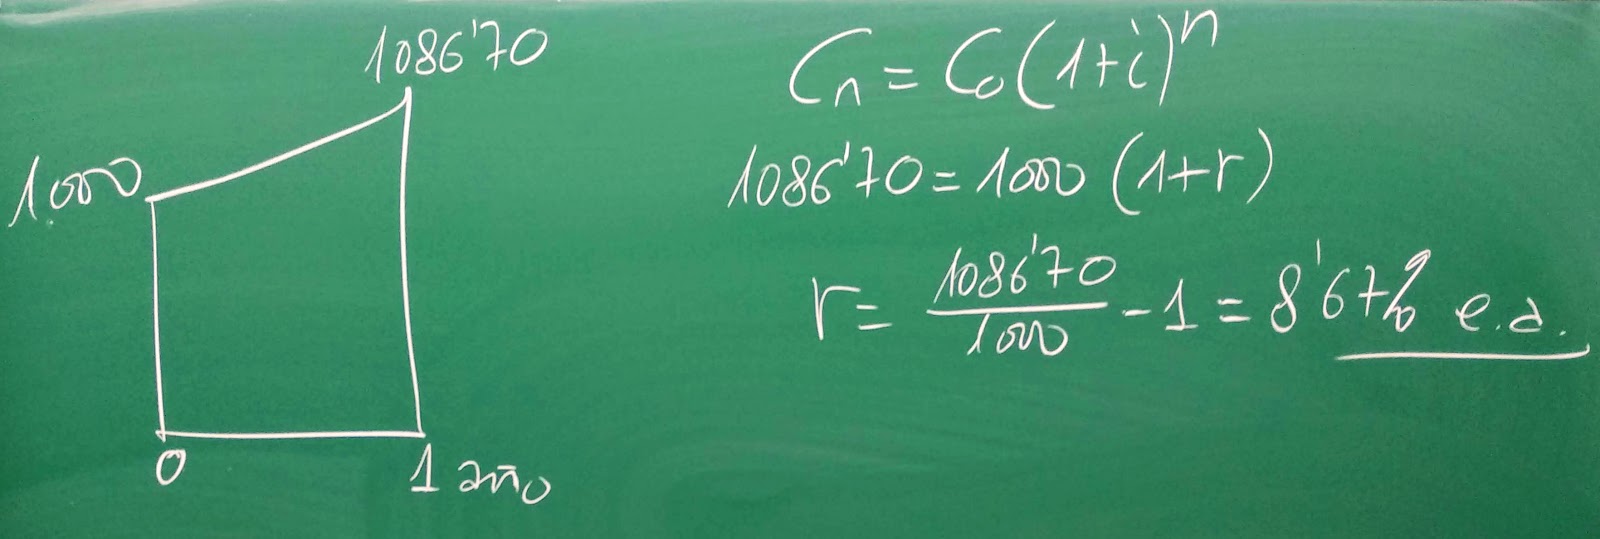 1086'70
1000
0
1 año
Cn = Co (1+i)^n
1086'70 = 1000 (1+r)
r = 1086'70 / 1000 - 1 = 8'67% e.a.